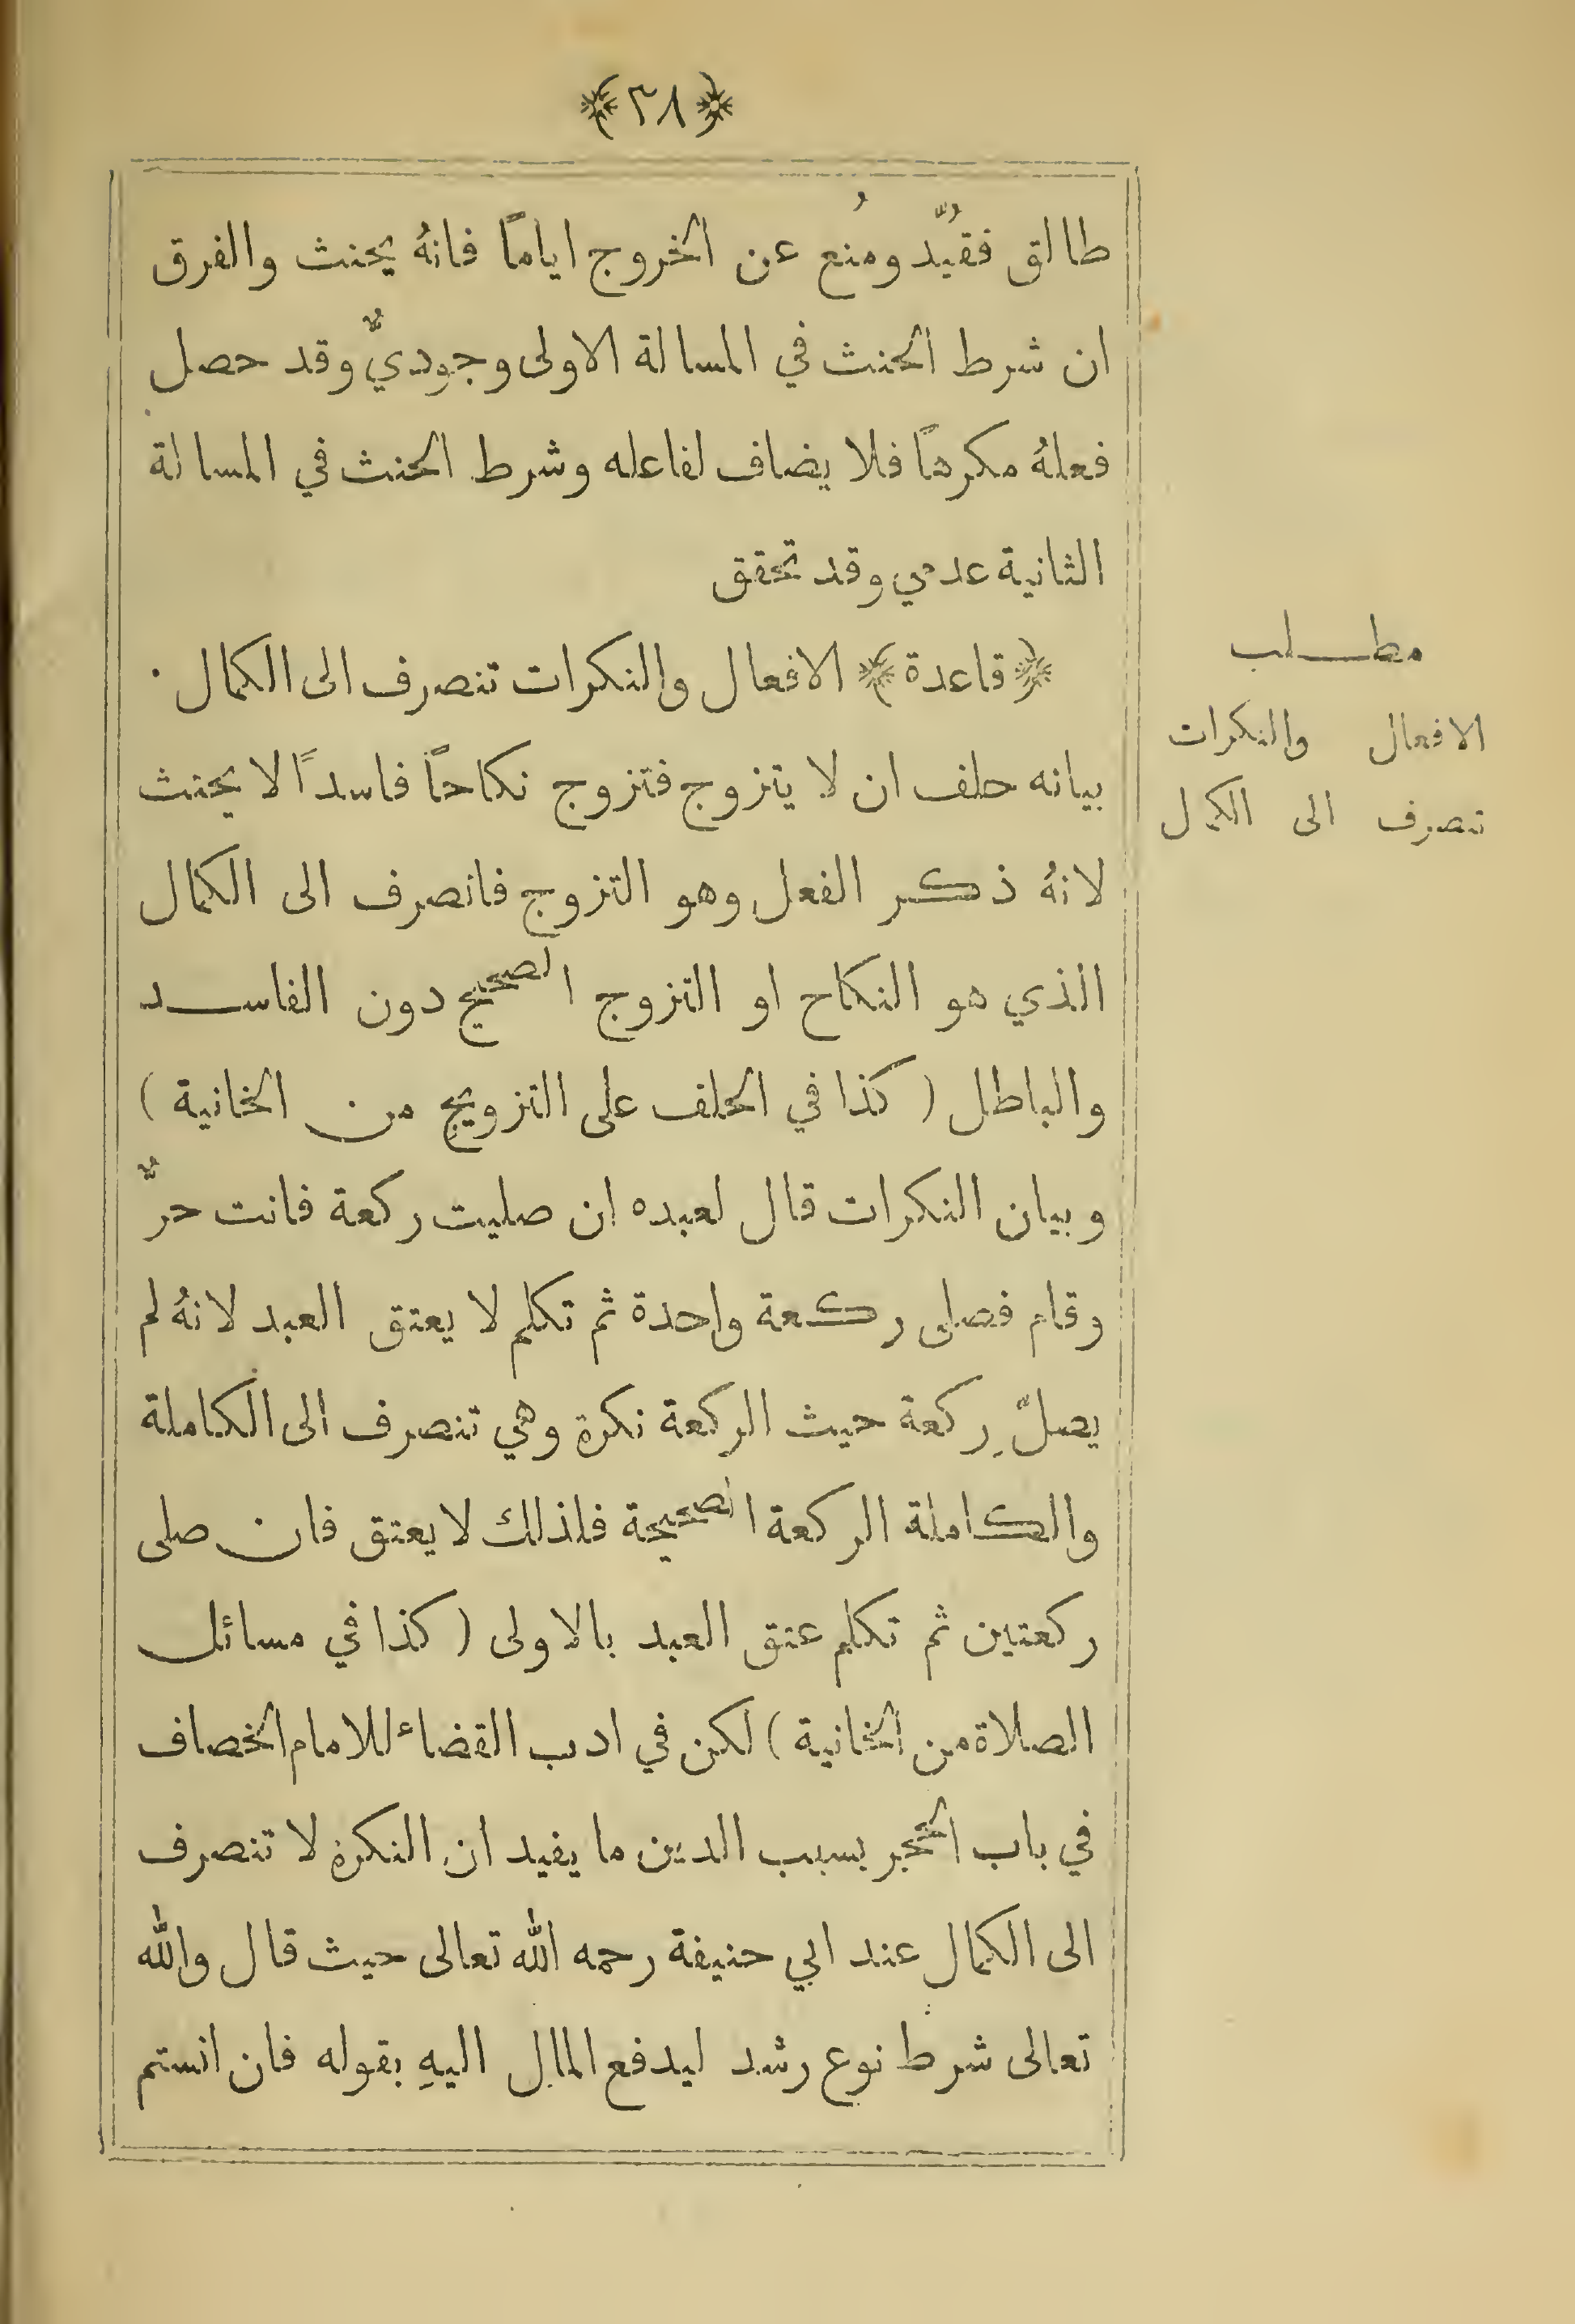 ﴿٣٨﴾
طالق فقُيّد ومُنع عن الخروج اياماً فانهُ يحنث والفرق
ان شرط الحنث في المسالة الاولى وجوديٌّ وقد حصل
فعلهُ مكرهاً فلا يضاف لفاعله وشرط الحنث في المسالة
الثانية عدمي وقد تحقق
﴿قاعدة﴾ الافعال والنكرات تنصرف الى الكمال ٠
بيانه حلف ان لا يتزوج فتزوج نكاحاً فاسداً لا يحنث
لانهُ ذكر الفعل وهو التزوج فانصرف الى الكمال
الذي هو النكاح او التزوج الصحيح دون الفاسد
والباطل ( كذا في الحلف على التزويج من الخانية )
وبيان النكرات قال لعبده ان صليت ركعة فانت حرٌّ
وقام فصلى ركعة واحدة ثم تكلم لا يعتق العبد لانهُ لم
يصلِّ ركعة حيث الركعة نكرة وهي تنصرف الى الكاملة
والكاملة الركعة الصحيحة فلذلك لا يعتق فان صلى
ركعتين ثم تكلم عتق العبد بالاولى ( كذا في مسائل
الصلاة من الخانية ) لكن في ادب القضاء للامام الخصاف
في باب الحجر بسبب الدين ما يفيد ان النكرة لا تنصرف
الى الكمال عند ابي حنيفة رحمه الله تعالى حيث قال والله
تعالى شرط نوع رشد ليدفع المال اليهِ بقوله فان انستم
مطلب
الافعال والنكرات
تنصرف الى الكمال